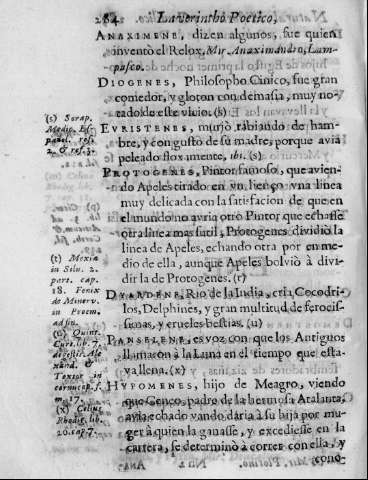 284 Laverintho Poetico,
ANAXIMENE, dizen algunos, fue quien
inventò el Relox, Mir. Anaximandro, Lam-
pusco.
DIOGENES, Philosopho Cinico, fue gran
comedor, y gloton con demasia, muy no-
tado de este vicio. (h)
EVRISTENES, muriò rabiando de ham-
bre, y con gusto de su madre, porque avia
peleado floxamente, ibi. (s)
PROTOGENES, Pintor famoso, que avien-
do Apeles tirado en vn lienço vna linea
muy delicada con la satisfacion de que en
el mundo no avria otro Pintor que echasse
otra linea mas sutil, Protogenes dividiò la
linea de Apeles, echando otra por en me-
dio de ella, aunque Apeles bolviò à divi-
dir la de Protogenes. (r)
DYARDENE, Rio de la India, cria Cocodri-
los, Delphines, y gran multitud de ferocis-
simas, y crueles bestias. (u)
PANSELENE, es voz con que los Antiguos
llamaron à la Luna en el tiempo que esta-
va llena. (x)
HYPOMENES, hijo de Meagro, viendo
que Cenco, padre de la hermosa Atalanta,
avia echado vando daria à su hija por mu-
ger à quien la ganasse, y excediesse en la
carrera, se determinò à correr con ella, y
cono-
(s) Sorap.
Medic. Es-
pañol. refr.
2. & ref. 3.
(t) Mexia
in Silu. 2.
part. cap.
18. Fenix
de Minerv.
in Proem.
ad fin.
(u) Quint.
Cur. lib. 7.
de gestis Ale
xand. &
Textor in
cornucop. f.
m. 17.
(x) Celius
Rhodig. lib.
20. cap. 7.